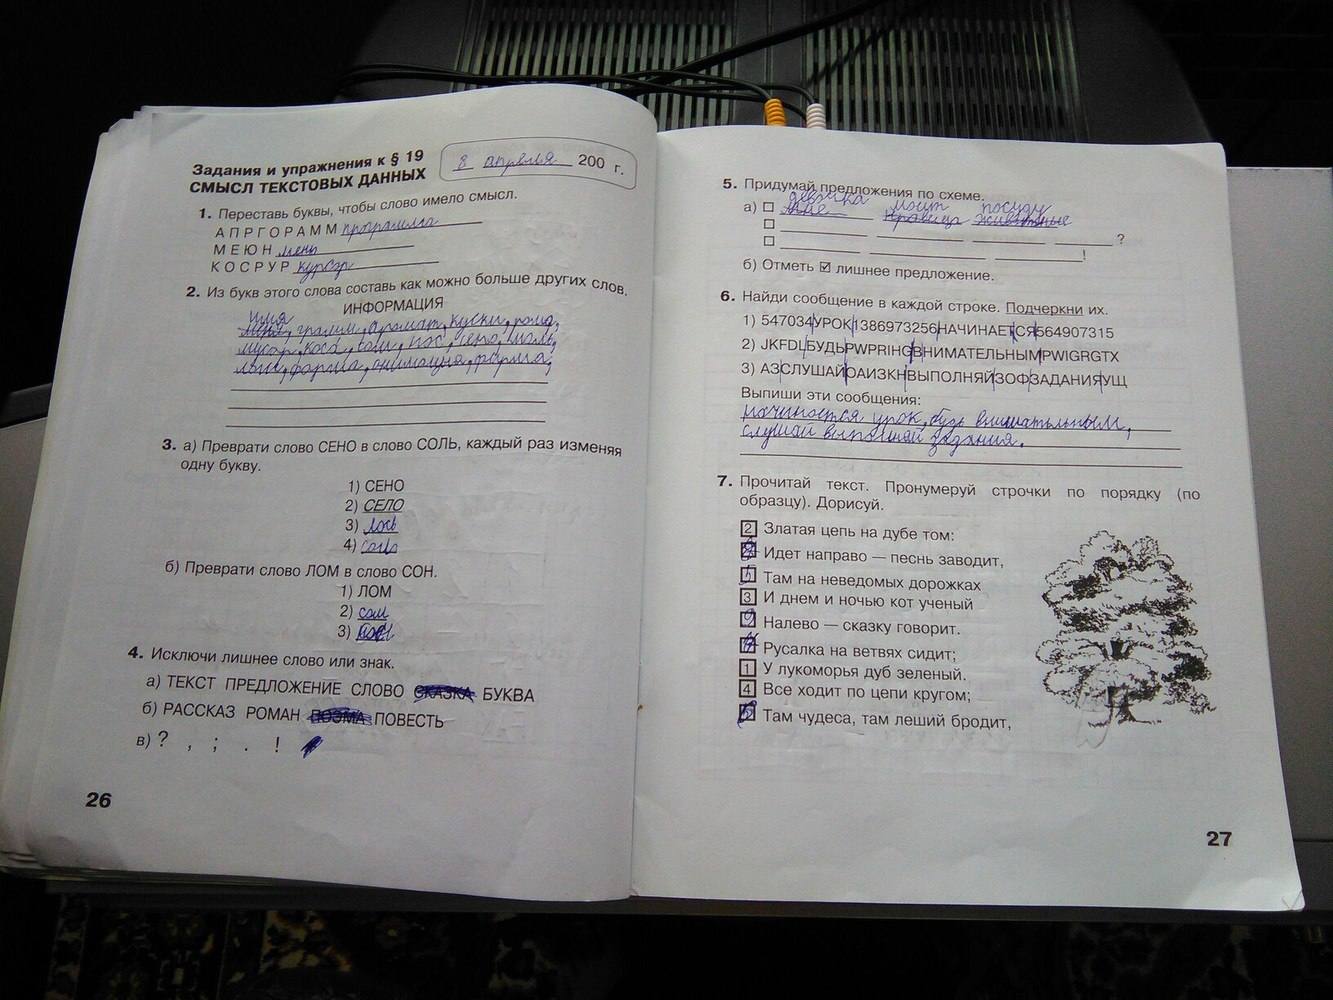 Задания и упражнения к § 19
СМЫСЛ ТЕКСТОВЫХ ДАННЫХ
8 апреля 200 г.
1. Переставь буквы, чтобы слово имело смысл.
АПРГОРАММ программа
МЕЮН мень
КОСРУР курсор
2. Из букв этого слова составь как можно больше других слов.
ИНФОРМАЦИЯ
имя
грамм, аромат, куски, рома,
мусор, коса, сом, нос, сено, моль,
форма, анимация, фирма,
3. а) Преврати слово СЕНО в слово СОЛЬ, каждый раз изменяя
одну букву.
1) СЕНО
2) СЕЛО
3) лось
4)
б) Преврати слово ЛОМ в слово СОН.
1) ЛОМ
2) сом
3)
4. Исключи лишнее слово или знак.
а) ТЕКСТ ПРЕДЛОЖЕНИЕ СЛОВО СКАЗКА БУКВА
б) РАССКАЗ РОМАН ПОЭМА ПОВЕСТЬ
в) ? , ; . !
26
5. Придумай предложения по схеме.
девочка моет посуду
а) мне нравица животные
?
!
б) Отметь ☑ лишнее предложение.
6. Найди сообщение в каждой строке. Подчеркни их.
1) 547034УРОК1386973256НАЧИНАЕТСЯ564907315
2) JKFDLБУДЬPWPRIHGВНИМАТЕЛЬНЫМPWIGRGTX
3) АЗСЛУШАЙОАИЗКНВЫПОЛНЯЙЗОФЗАДАНИЯУЩ
Выпиши эти сообщения:
начинается урок, будь внимательным,
слушай выполняй задания.
7. Прочитай текст. Пронумеруй строчки по порядку (по
образцу). Дорисуй.
2 Златая цепь на дубе том:
Идет направо — песнь заводит,
Там на неведомых дорожках
3 И днем и ночью кот ученый
9 Налево — сказку говорит.
Русалка на ветвях сидит;
1 У лукоморья дуб зеленый.
4 Все ходит по цепи кругом;
Там чудеса, там леший бродит,
27